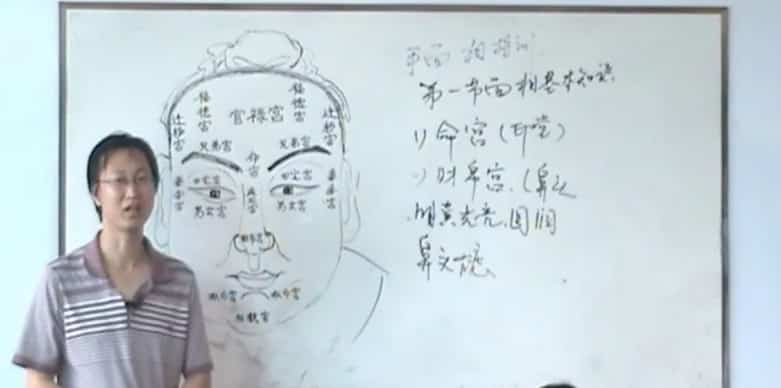 福德宫
福德宫
官禄宫
迁移宫
迁移宫
兄弟宫
兄弟宫
命宫
田宅宫
田宅宫
妻妾宫
妻妾宫
疾厄宫
男女宫
男女宫
财帛宫
奴仆宫
奴仆宫
相貌宫
第一节面相基本知识
1)命宫(印堂)
财帛宫
明黄光亮圆润